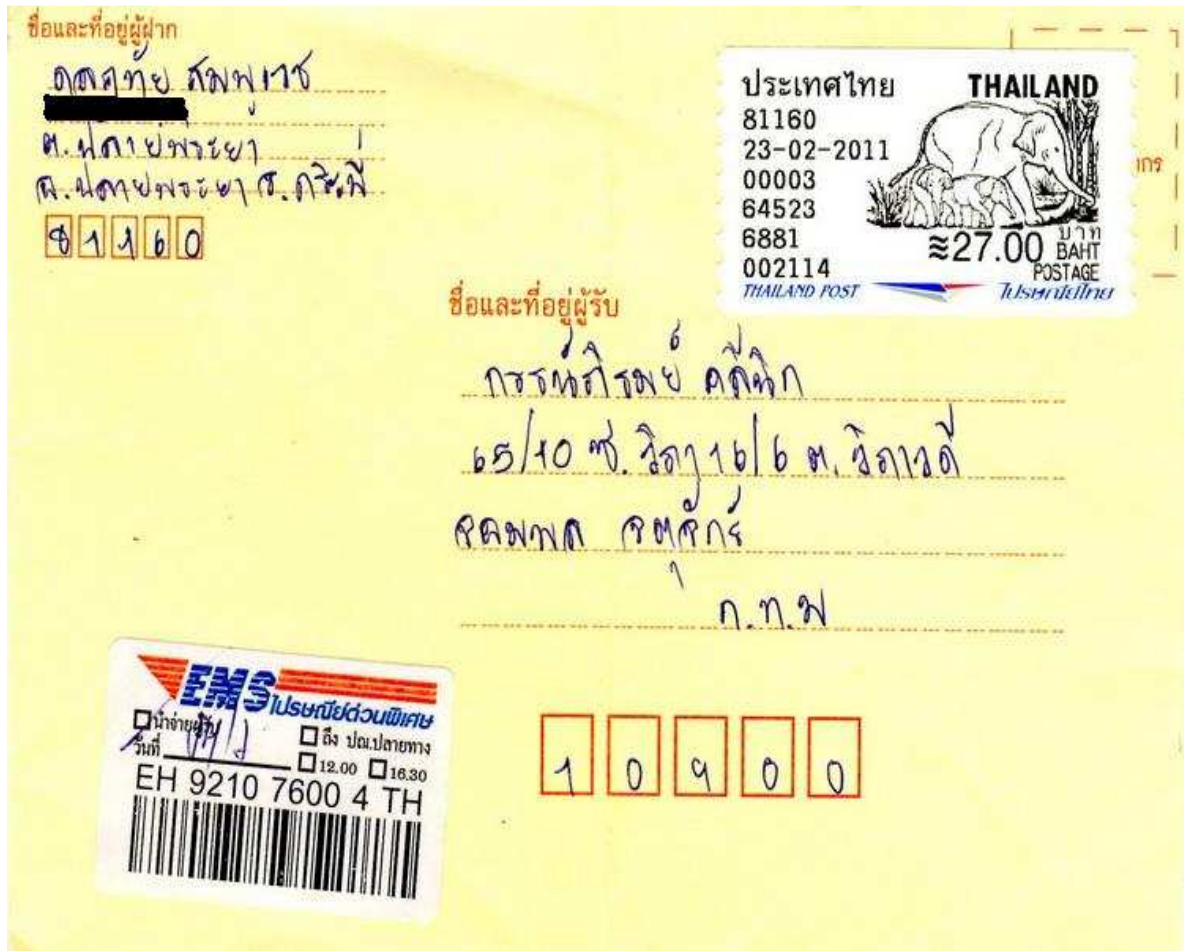 ชื่อและที่อยู่ผู้ฝาก
ดลฤทัย สมพูเวช
ต.ปลายพระยา
อ.ปลายพระยา จ.กระบี่
81160
ประเทศไทย THAILAND
81160
23-02-2011
00003
64523
6881
002114
≋27.00 บาท BAHT
POSTAGE
THAILAND POST ไปรษณีย์ไทย
กร
ชื่อและที่อยู่ผู้รับ
กรรณ์ภิรมย์ คลีนิก
65/10 ซ.วิภา 16/6 ถ.วิภาวดี
จอมพล จตุจักร
ก.ท.ม
10900
EMS ไปรษณีย์ด่วนพิเศษ
นำจ่ายผู้รับ ถึง ปณ.ปลายทาง
วันที่ 12.00 16.30
EH 9210 7600 4 TH